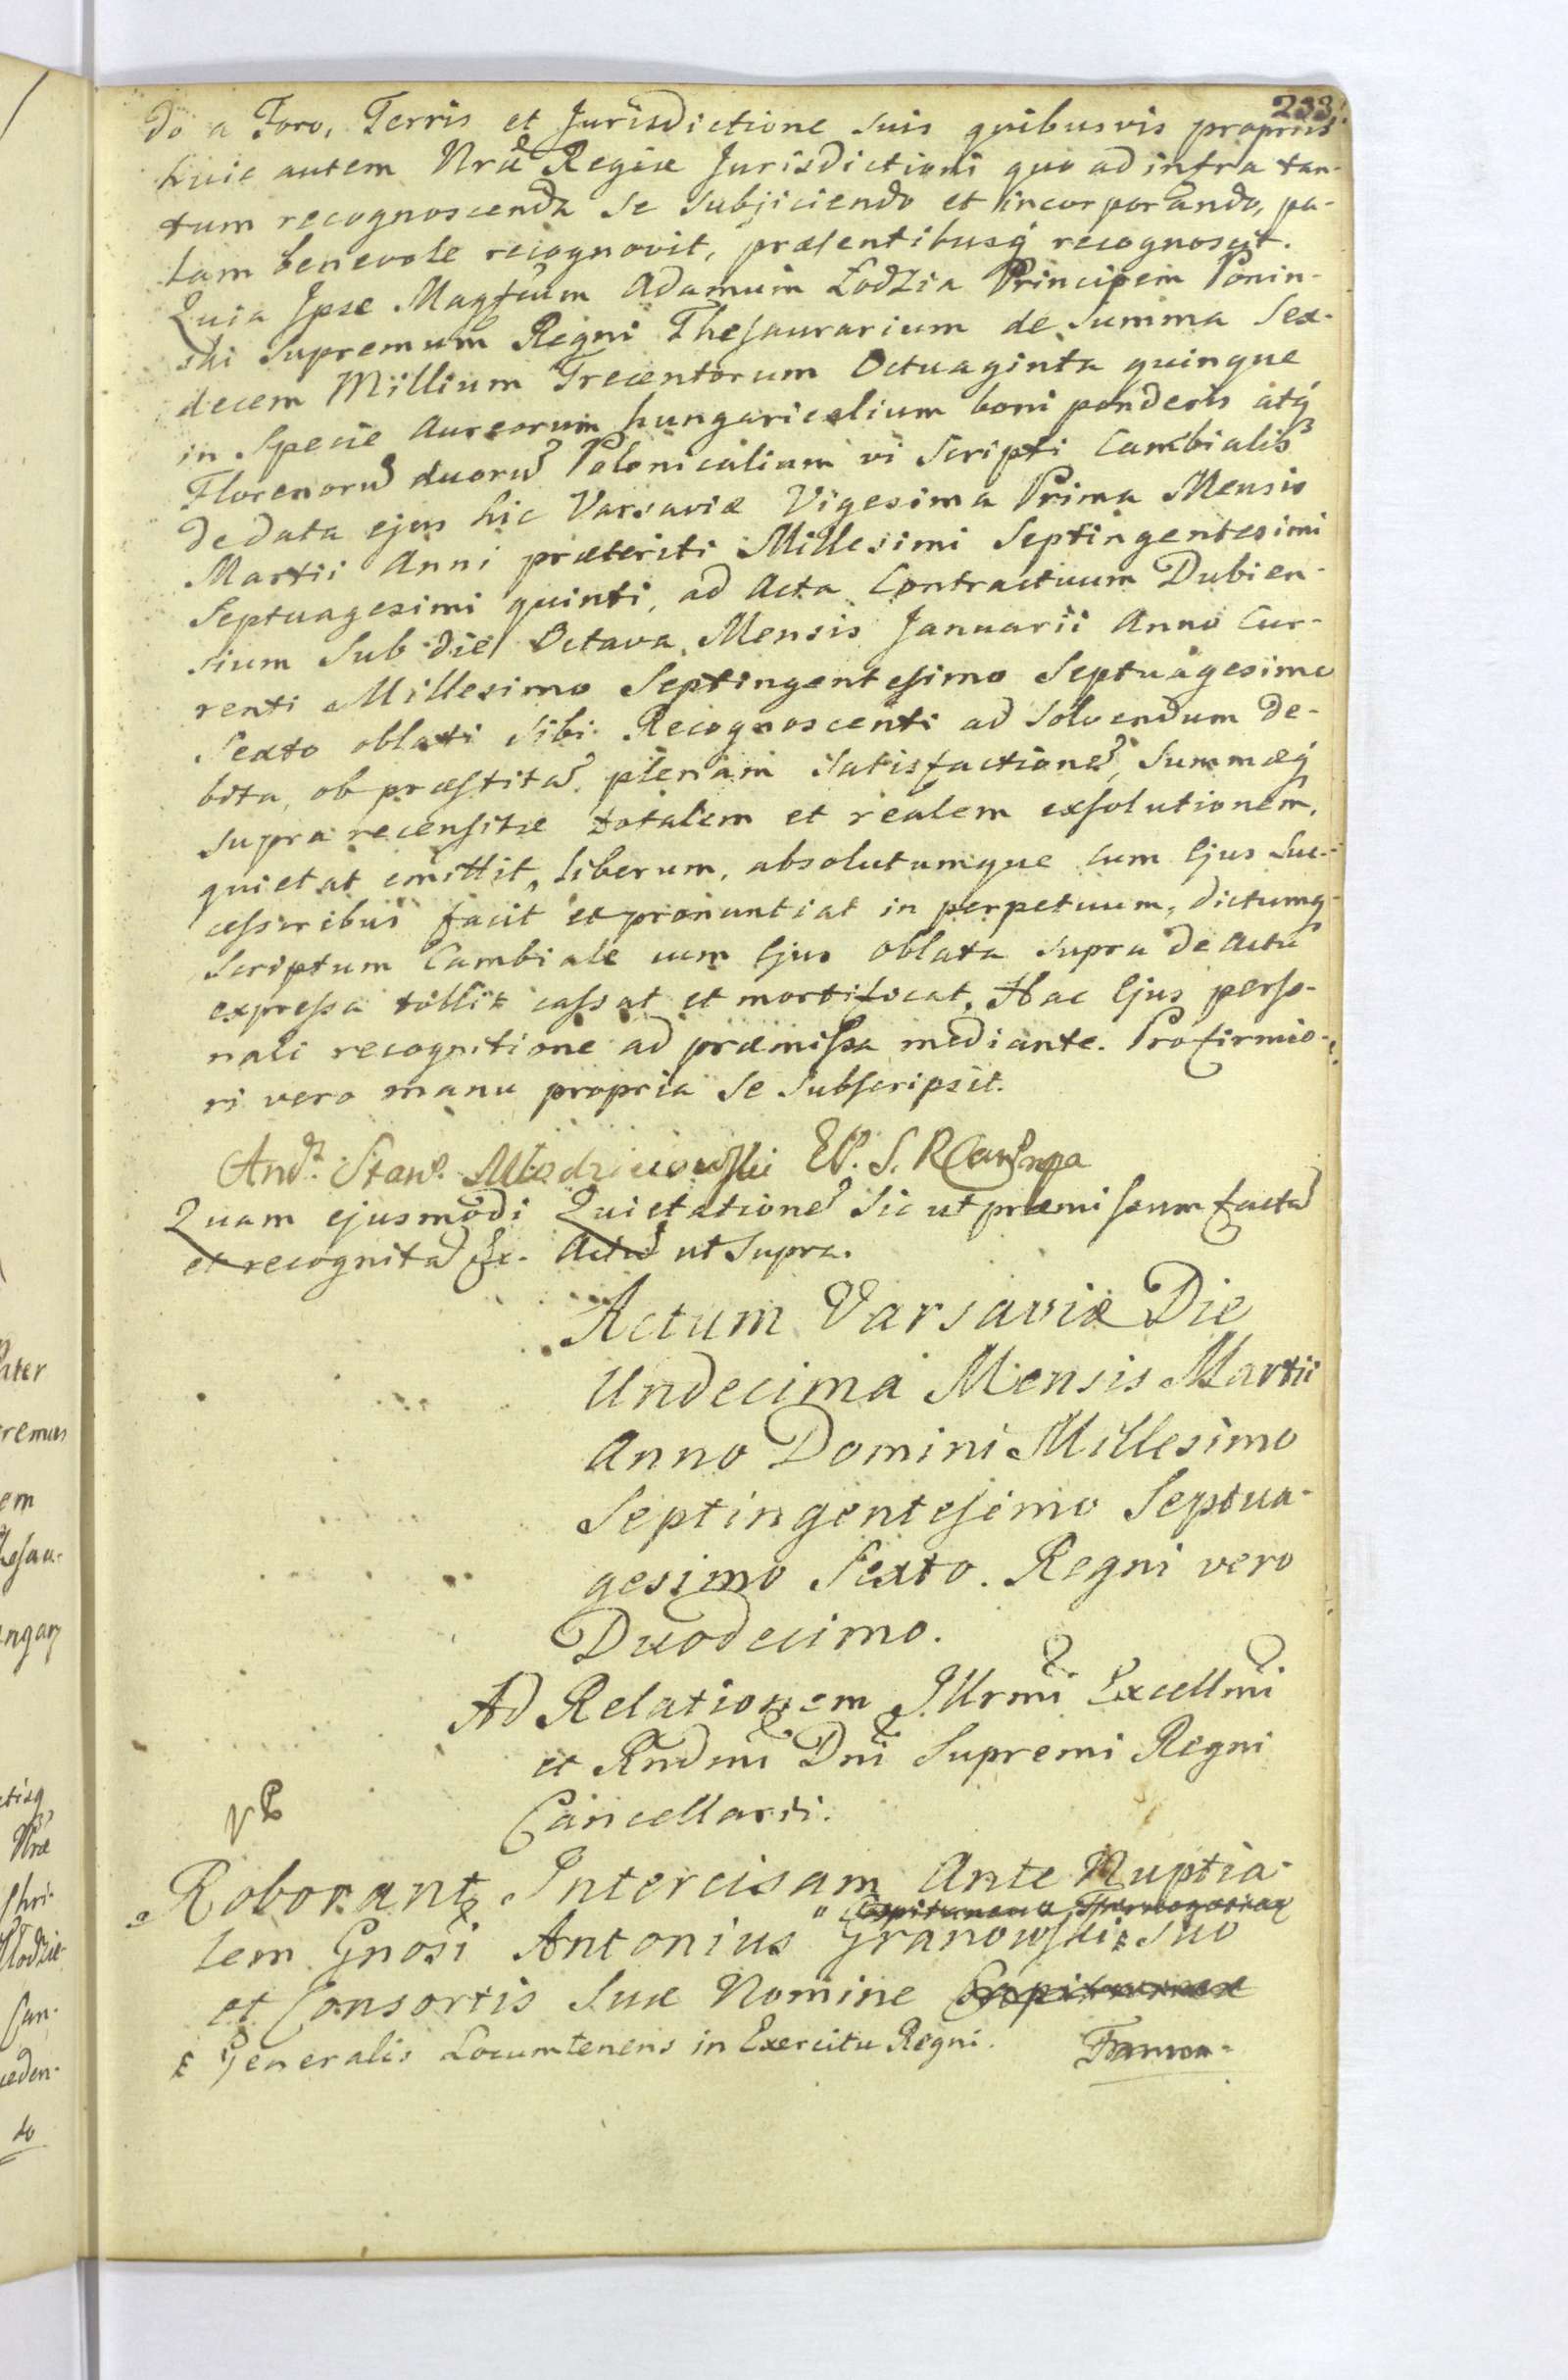 233
do a Foro, Terris et Jurisdictione suis quibusvis propriis
huic autem Nrae Regiae Jurisdictioni quo ad infra tan-
tum recognoscenda se subjiciendo et incorporando, pa-
lam benevole recognovit, praesentibusq recognoscit.
Quia Ipse Magfcum Adamum Łodzia Principem Ponin-
ski Supremum Regni Thesaurarium de Summa Sex-
decem Millium Trecentorum Octuaginta quinque
in Specie Aureorum hungaricalium boni ponderis atq
Florenoru duoru Polonicalium vi Scripti Cambialis
de data ejus hic Varsaviae Vigesima Prima Mensis
Martii Anni praeteriti Millesimi Septingentesimi
Septuagesimi quinti, ad Acta Contractuum Dubien-
sium Sub die Octava Mensis Januarii Anno Cur-
renti Millesimo Septingentesimo Septuagesimo
Sexto oblati sibi Recognoscenti ad solvendum de-
bita, ob praestita plenam satisfactione, Summaeq
supra recensitae totalem et realem exsolutionem,
quietat emittit, liberum, absolutumque cum Ejus Suc-
cessoribus facit et pronuntiat in perpetuum, dictumq
Scriptum Cambiale cum Ejus oblata supra de actu
expressa tollit cassat et mortificat. Hac Ejus perso-
nali recognitione ad praemissa mediante. Pro firmio-
ri vero manu propria se subscripsit.
And. Stan. Młodzieiowski EP. S. R Can
Quam ejusmodi Quietatione sic ut praemissum facta
et recognita &c. Actu ut Supra.
Actum Varsaviae Die
Undecima Mensis Martii
Anno Domini Millesimo
Septingentesimo Septua-
gesimo Sexto. Regni vero
Duodecimo.
Ad Relationem Illrmi Excellmi
et Rndmi Dni Supremi Regni
Cancellarii.
Roborant Intercisam Ante Nuptia-
lem Gnosi Antonius Granowski Suo
et Consortis Suae Nomine
Generalis Locumtenens in Exercitu Regni.